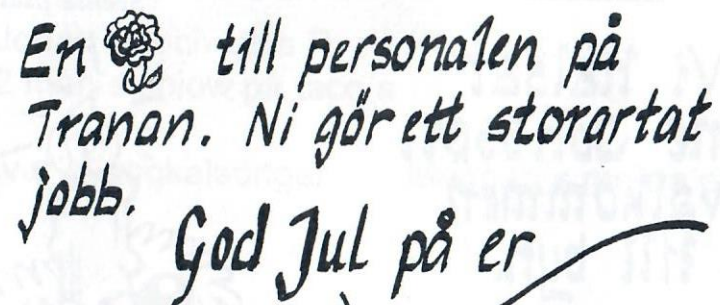 En till personalen på
Tranan. Ni gör ett storartat
jobb.
God Jul på er